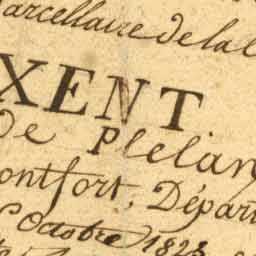 arcellaire de la C
XENT
de Plélan
ontfort, Dépar
Octobre 1828